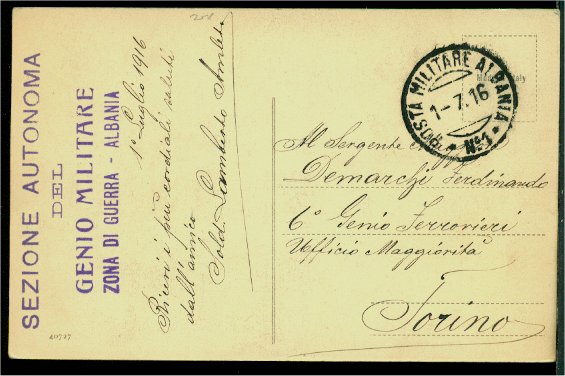 SEZIONE AUTONOMA
DEL
GENIO MILITARE
ZONA DI GUERRA - ALBANIA
1° Luglio 1916
Ricevi i più cordiali saluti
dall'amico
Sold.
POSTA MILITARE ALBANIA
1-7.16
N°1
Al Sergente
Demarchi Ferdinando
6° Genio Ferrovieri
Ufficio Maggiorità
Torino